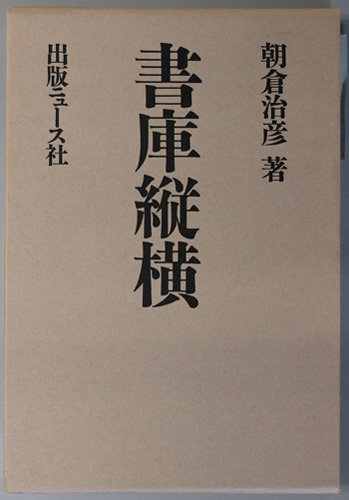 朝倉治彦 著
書庫縦横
出版ニュース社